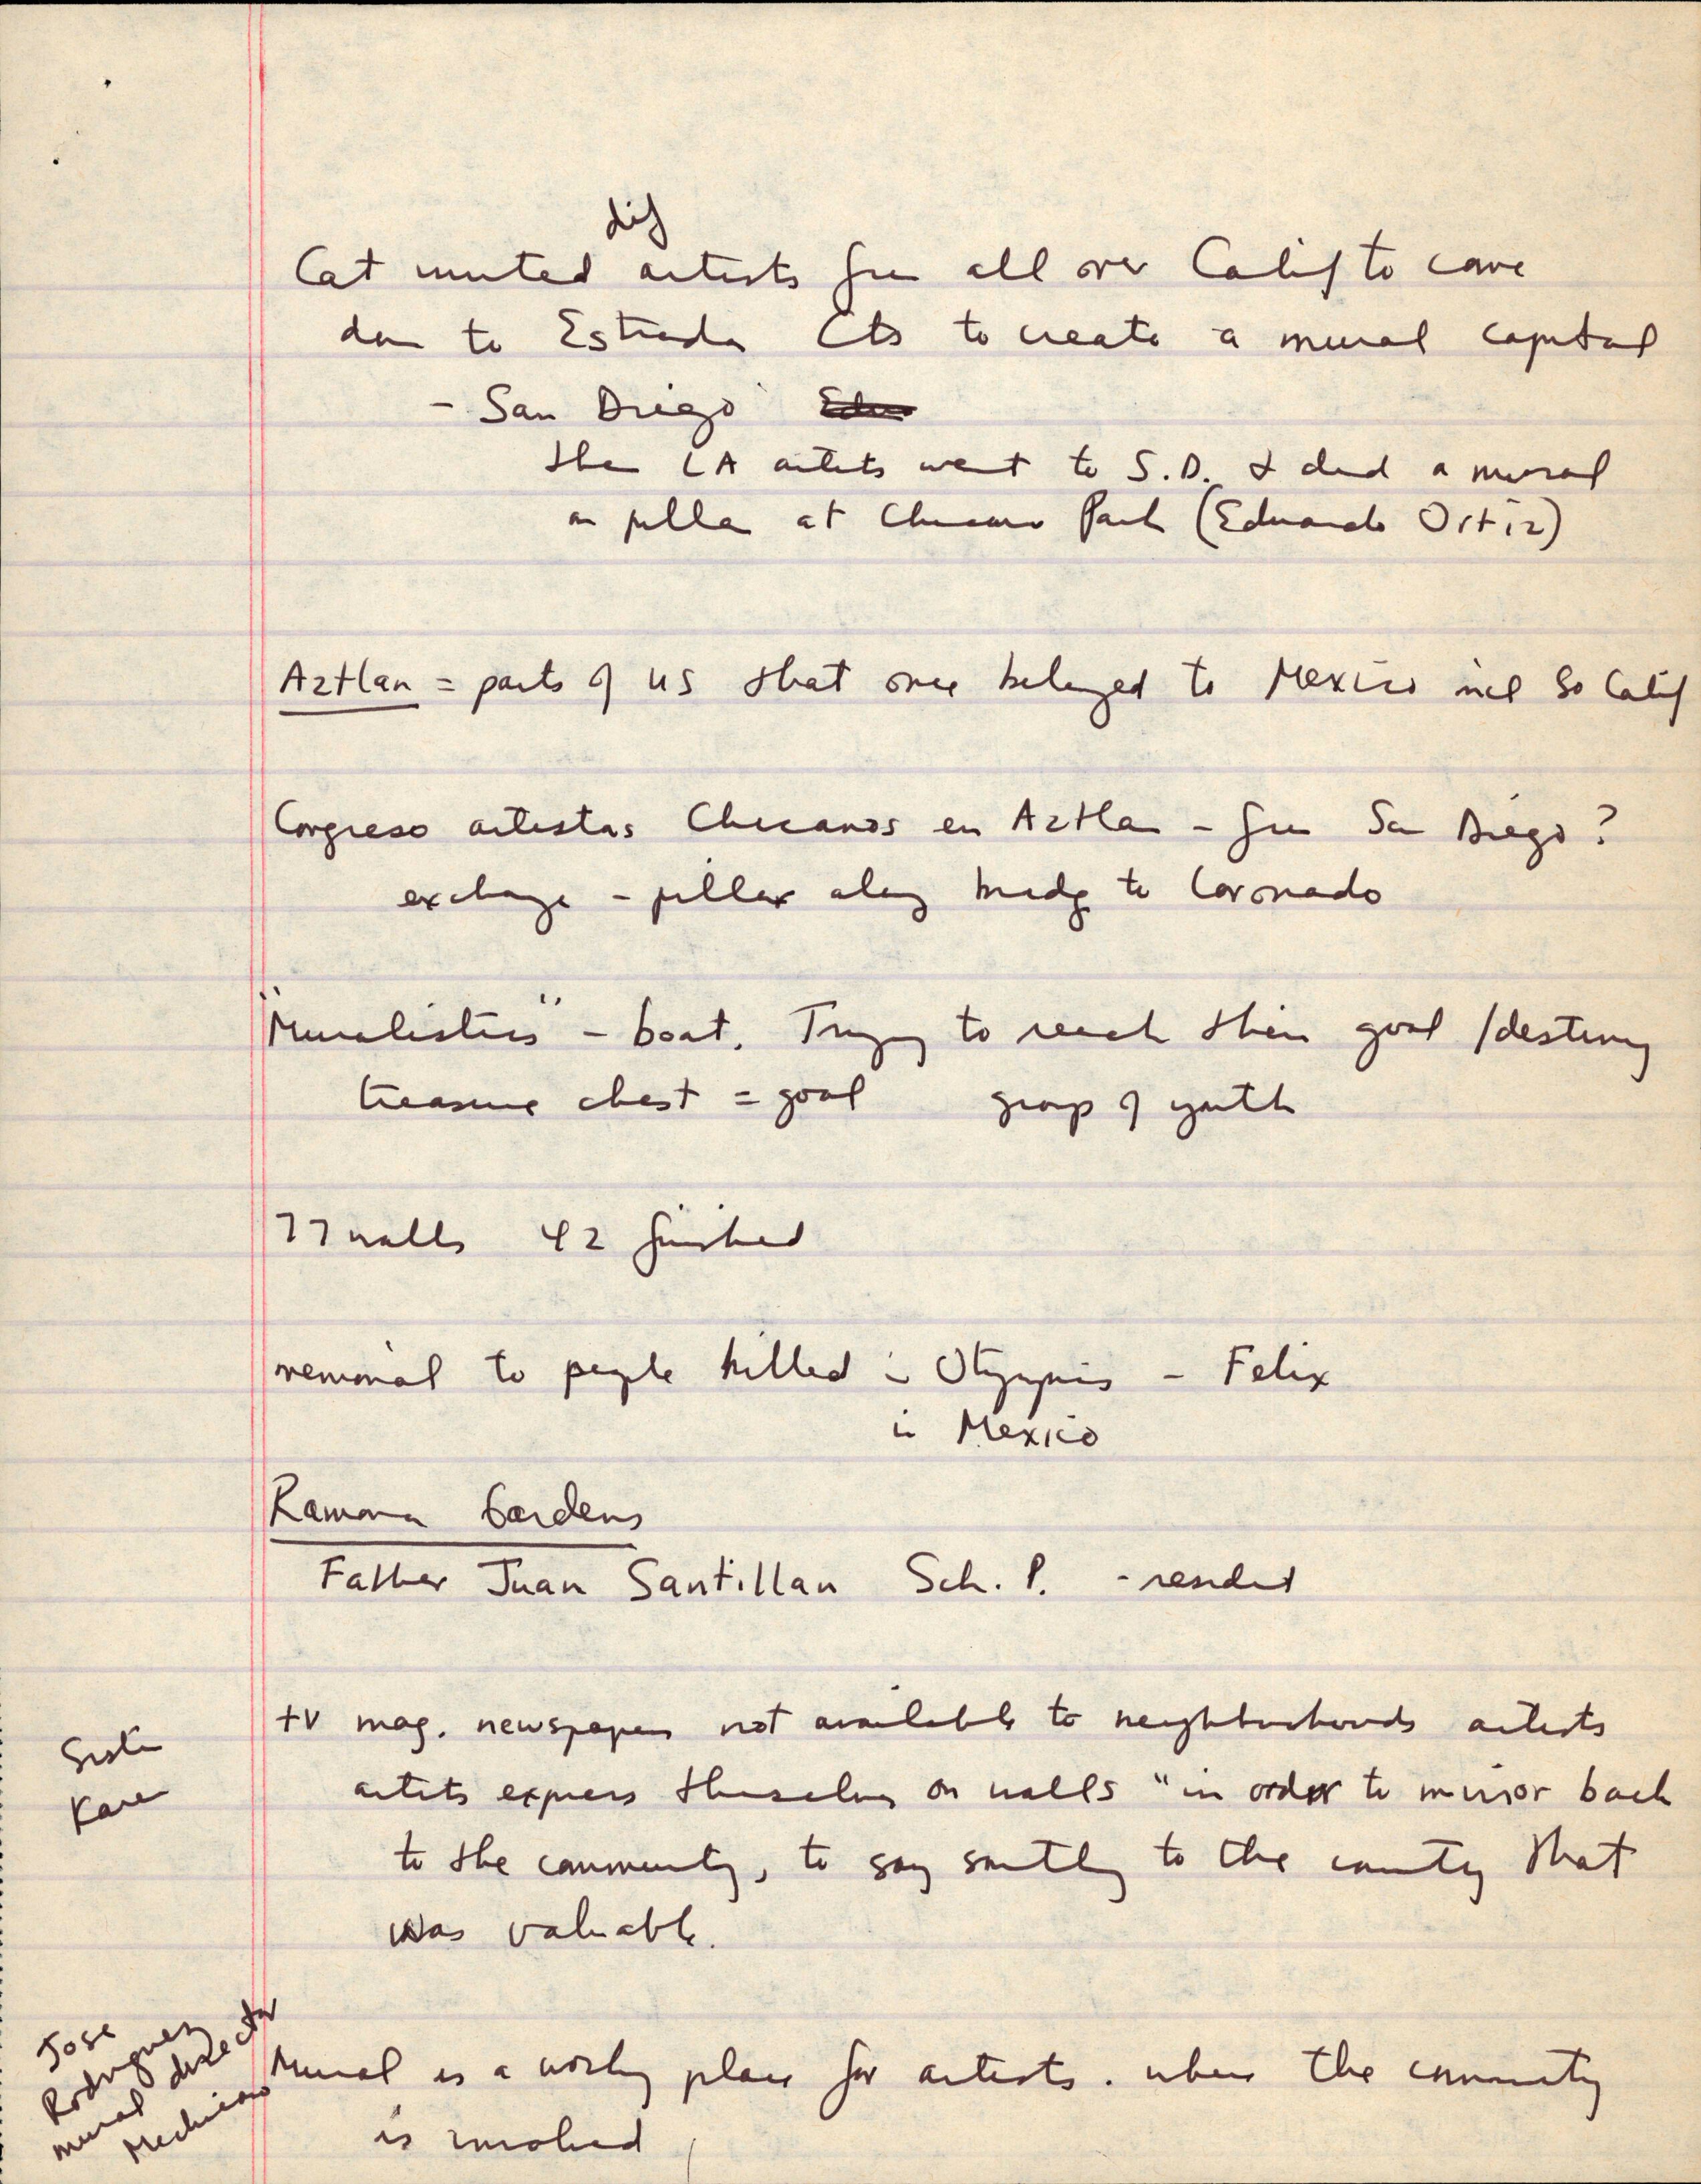 dif
Cat invited artists from all over Calif to come
down to Estrada Cts to create a mural capital
- San Diego
then LA artists went to S.D. & did a mural
on pillar at Chicano Park (Eduardo Ortiz)
Aztlan = parts of US that once belonged to Mexico incl So Calif
Congreso artistas Chicanos en Aztlan - from San Diego?
exchange - pillar along bridge to Coronado
"Muralistics" - boat. Trying to reach their goal / destiny
treasure chest = goal group of youth
77 walls 42 finished
memorial to people killed in Olympics - Felix
in Mexico
Ramona Gardens
Father Juan Santillan Sch. P. - resident
tv mag. newspapers not available to neighborhoods artists
artists express themselves on walls "in order to mirror back
to the community, to say smthg to the comunity that
was valuable.
Sister
Karen
Jose
Rodriguez
mural director
Mechicano
Mural is a working place for artists. where the community
is involved